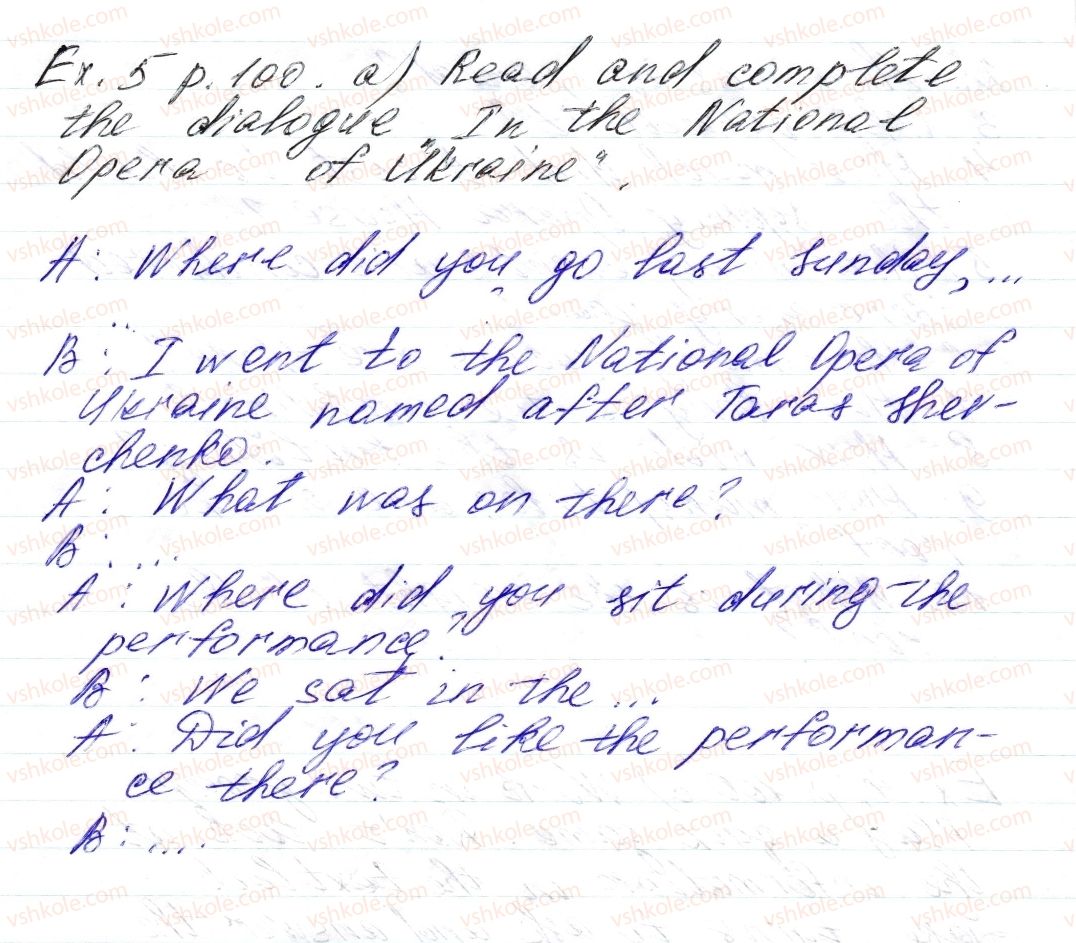 Ex. 5 p. 100. a) Read and complete
the dialogue „In the National
Opera of Ukraine“.
A: Where did you go last Sunday, ...
...
B: I went to the National Opera of
Ukraine named after Taras Shev-
chenko.
A: What was on there?
B: ....
A: Where did you sit during the
performance?
B: We sat in the ...
A: Did you like the performan-
ce there?
B: ....
vshkole.com